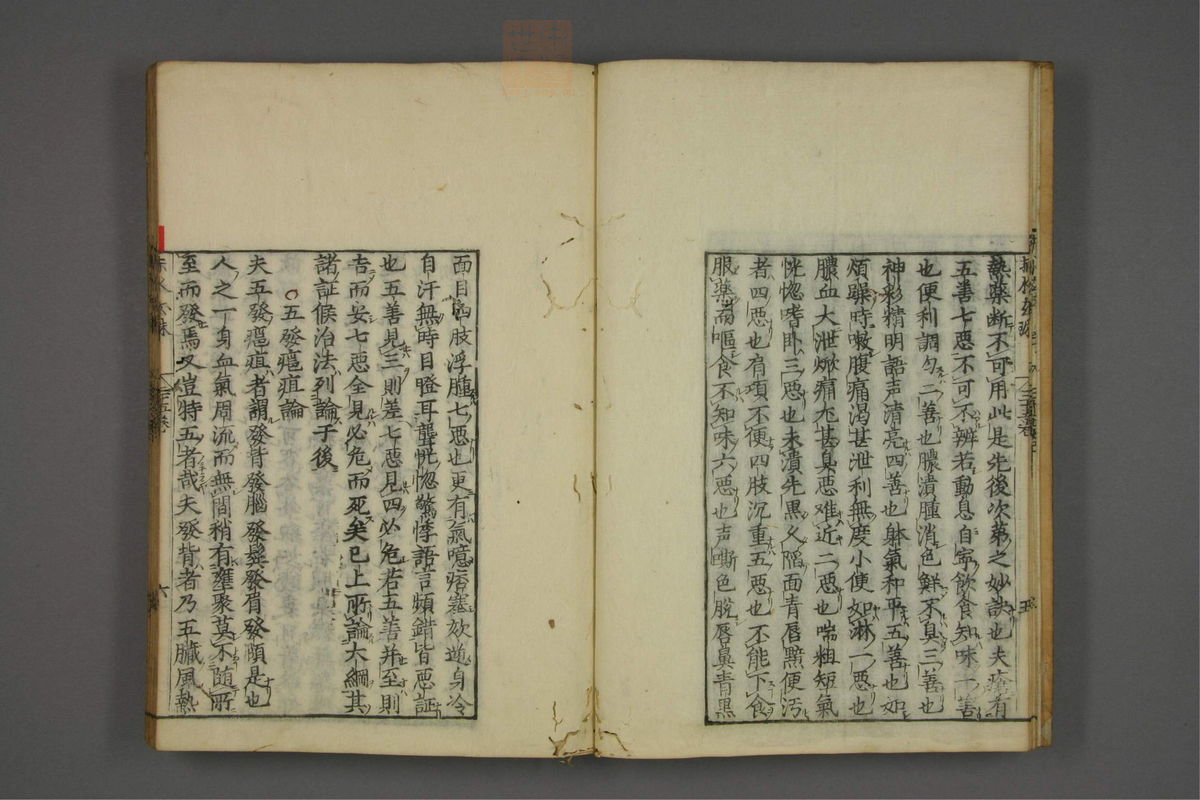 熱藥断不可用此是先後次第之妙訣也夫瘡有
五善七惡不可不辨若動息自寧飲食知味一善
也便利調匀二善也膿潰腫消色鮮不臭三善也
神彩精明語声清亮四善也躰氣和平五善也如
煩躁時嗽腹痛渴甚泄利無度小便如淋一惡也
膿血大泄焮痛尤甚臭惡难近二惡也喘粗短氣
恍惚嗜卧三惡也未潰先黒久陷面青唇黯便汚
者四惡也肩項不便四肢沉重五惡也不能下食
服藥而嘔食不知味六惡也声嘶色脫唇鼻青黒
面目四肢浮腫七惡也更有氣噫痞塞欬逆身冷
自汗無時目瞪耳聾恍惚驚悸語言頻錯皆惡証
也五善見三則差七惡見四必危若五善并至則
吉而安七惡全見必危而死矣已上所論大綱其
諸証候治法列論于後
○五發癰疽論
夫五發癰疽者謂發背發腦發鬢發眉發頤是也
人之一身血氣周流而無間稍有壅聚莫不随所
至而發焉又豈特五者哉夫發背者乃五臟風熱
六